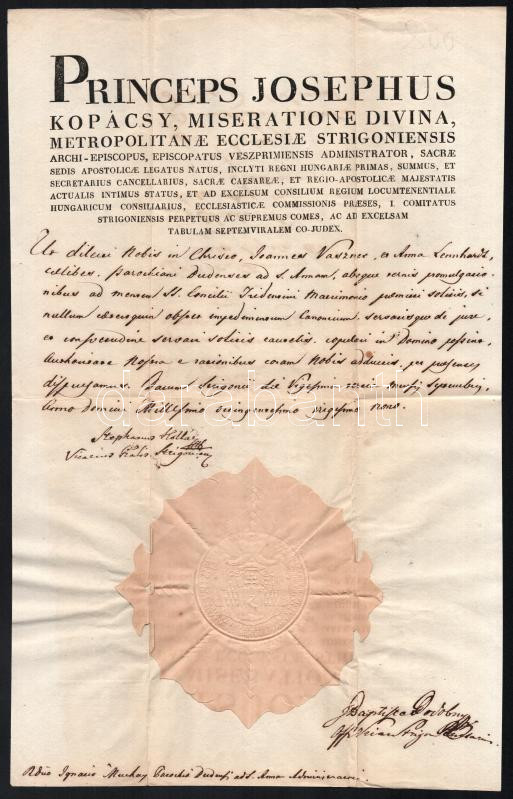 PRINCEPS JOSEPHUS
KOPÁCSY, MISERATIONE DIVINA,
METROPOLITANÆ ECCLESIÆ STRIGONIENSIS
ARCHI-EPISCOPUS, EPISCOPATUS VESZPRIMIENSIS ADMINISTRATOR, SACRÆ
SEDIS APOSTOLICÆ LEGATUS NATUS, INCLYTI REGNI HUNGARIÆ PRIMAS, SUMMUS, ET
SECRETARIUS CANCELLARIUS, SACRÆ CAESAREÆ, ET REGIO-APOSTOLICÆ MAJESTATIS
ACTUALIS INTIMUS STATUS, ET AD EXCELSUM CONSILIUM REGIUM LOCUMTENENTIALE
HUNGARICUM CONSILIARIUS, ECCLESIASTICÆ COMMISSIONIS PRÆSES, I. COMITATUS
STRIGONIENSIS PERPETUUS AC SUPREMUS COMES, AC AD EXCELSAM
TABULAM SEPTEMVIRALEM CO-JUDEX.
Ut dilecti Nobis in Christo, Joannes et Anna Lennhardt,
cælibes parochiani Budenses ad S. Annam, absque ternis promulgatio-
nibus ad mentem SS. Concilii Tridentini Matrimonio præmitti solitis, si
nullum cæteroquin obstet impedimentum Canonicum servatisque de jure,
et consvetudine servari solitis cautelis copulari in Domino possint,
Authoritate Nostra e rationibus coram Nobis adductis, per præsentes
dispensamus. Datum Strigonii die Vigesima mensis Septembris,
Anno Domini Millesimo octingentesimo trigesimo nono.
Stephanus
Vicarius Gralis Strigonien
darabanth
J Baptista
Ignatio Parocho Budensi ad S. Anna Administratori